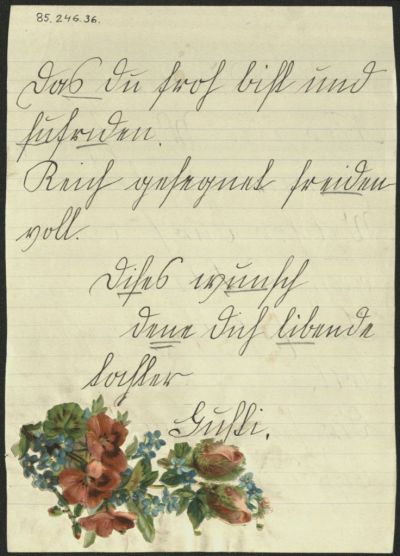 85.246.36.
Das du froh bist und
zufriden.
Reich gesegnet freiden
voll.
Dises wunsch
dene dich libende
tochter
Gusti.